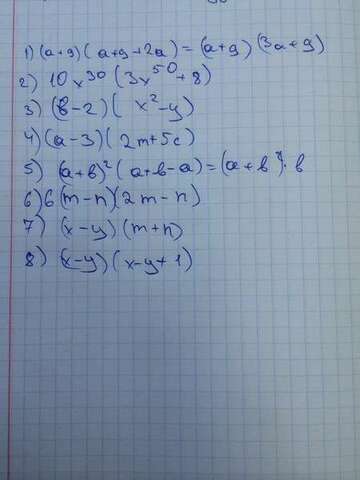 1) (a+g)(a+g+2a) = (a+g)(3a+g)
2) 10x³⁰(3x⁵⁰+8)
3) (b-2)(x²-y)
4) (a-3)(2m+5c)
5) (a+b)²(a+b-a) = (a+b)²·b
6) 6(m-n)(2m-n)
7) (x-y)(m+n)
8) (x-y)(x-y+1)